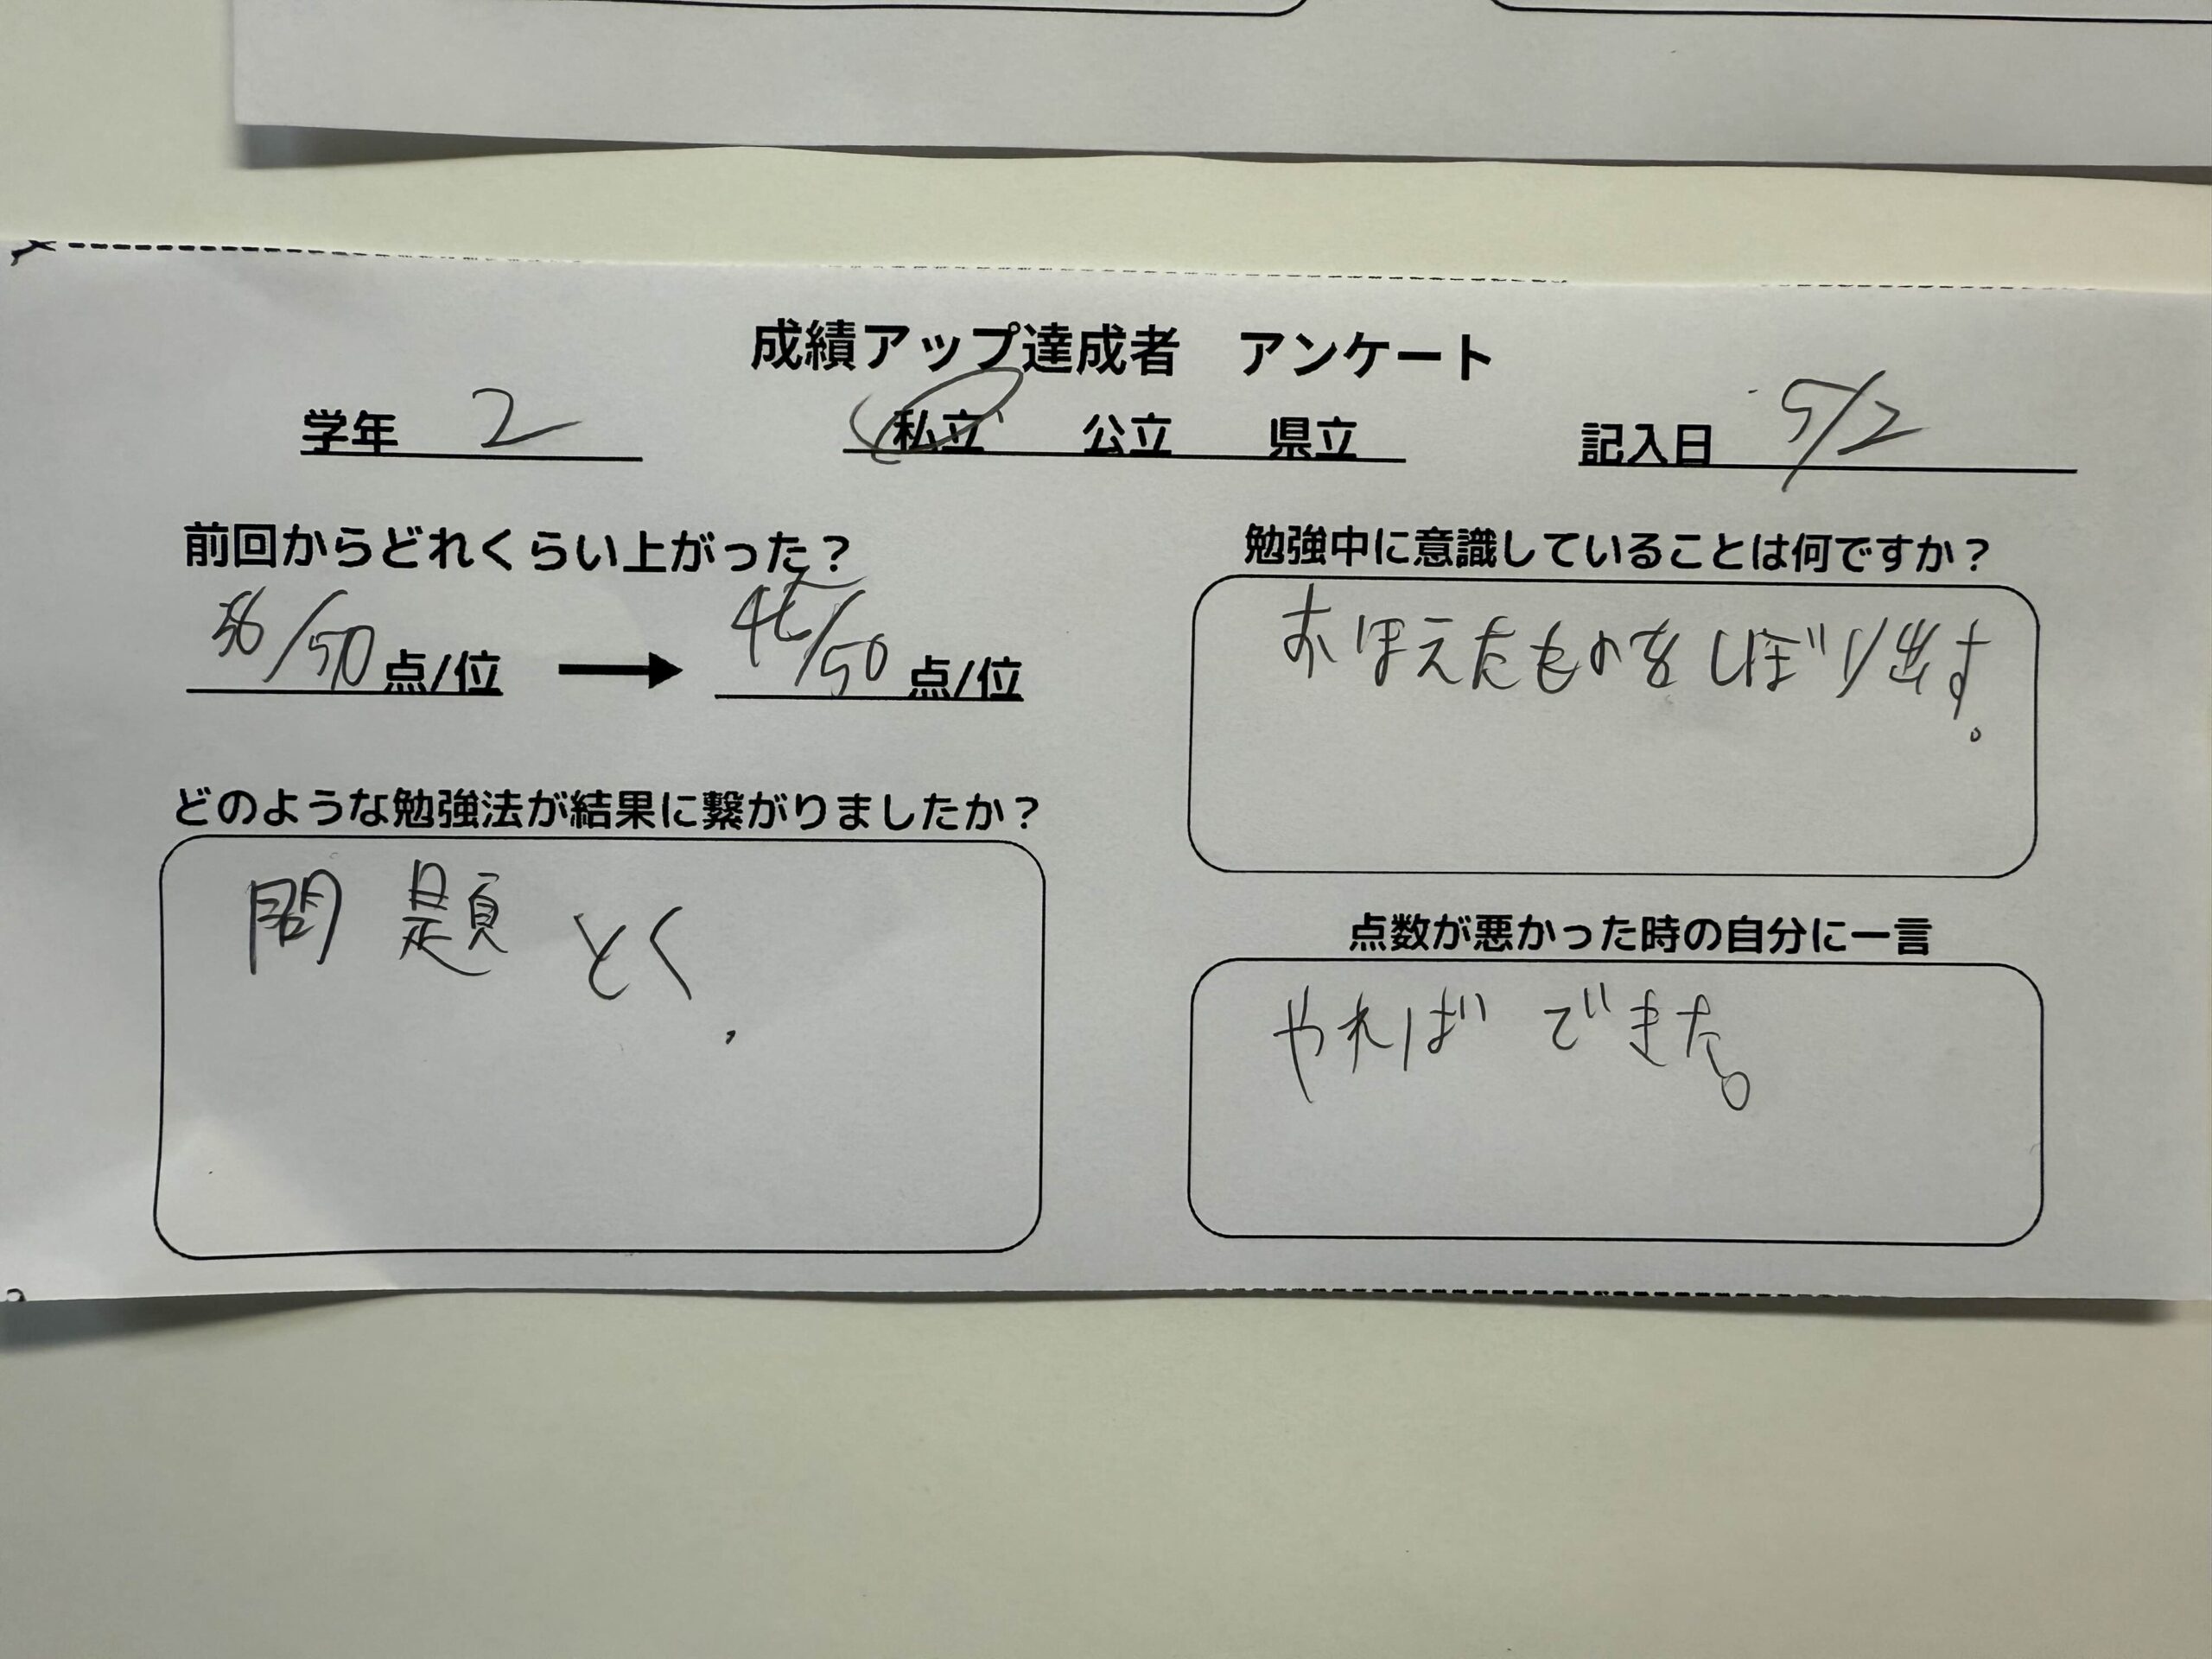 成績アップ達成者 アンケート
学年 2 私立 公立 県立 記入日 5/2
前回からどれくらい上がった？
36/50点/位 → 45/50点/位
どのような勉強法が結果に繋がりましたか？
問題とく.
勉強中に意識していることは何ですか？
おぼえたものをしぼり出す。
点数が悪かった時の自分に一言
やればできた。